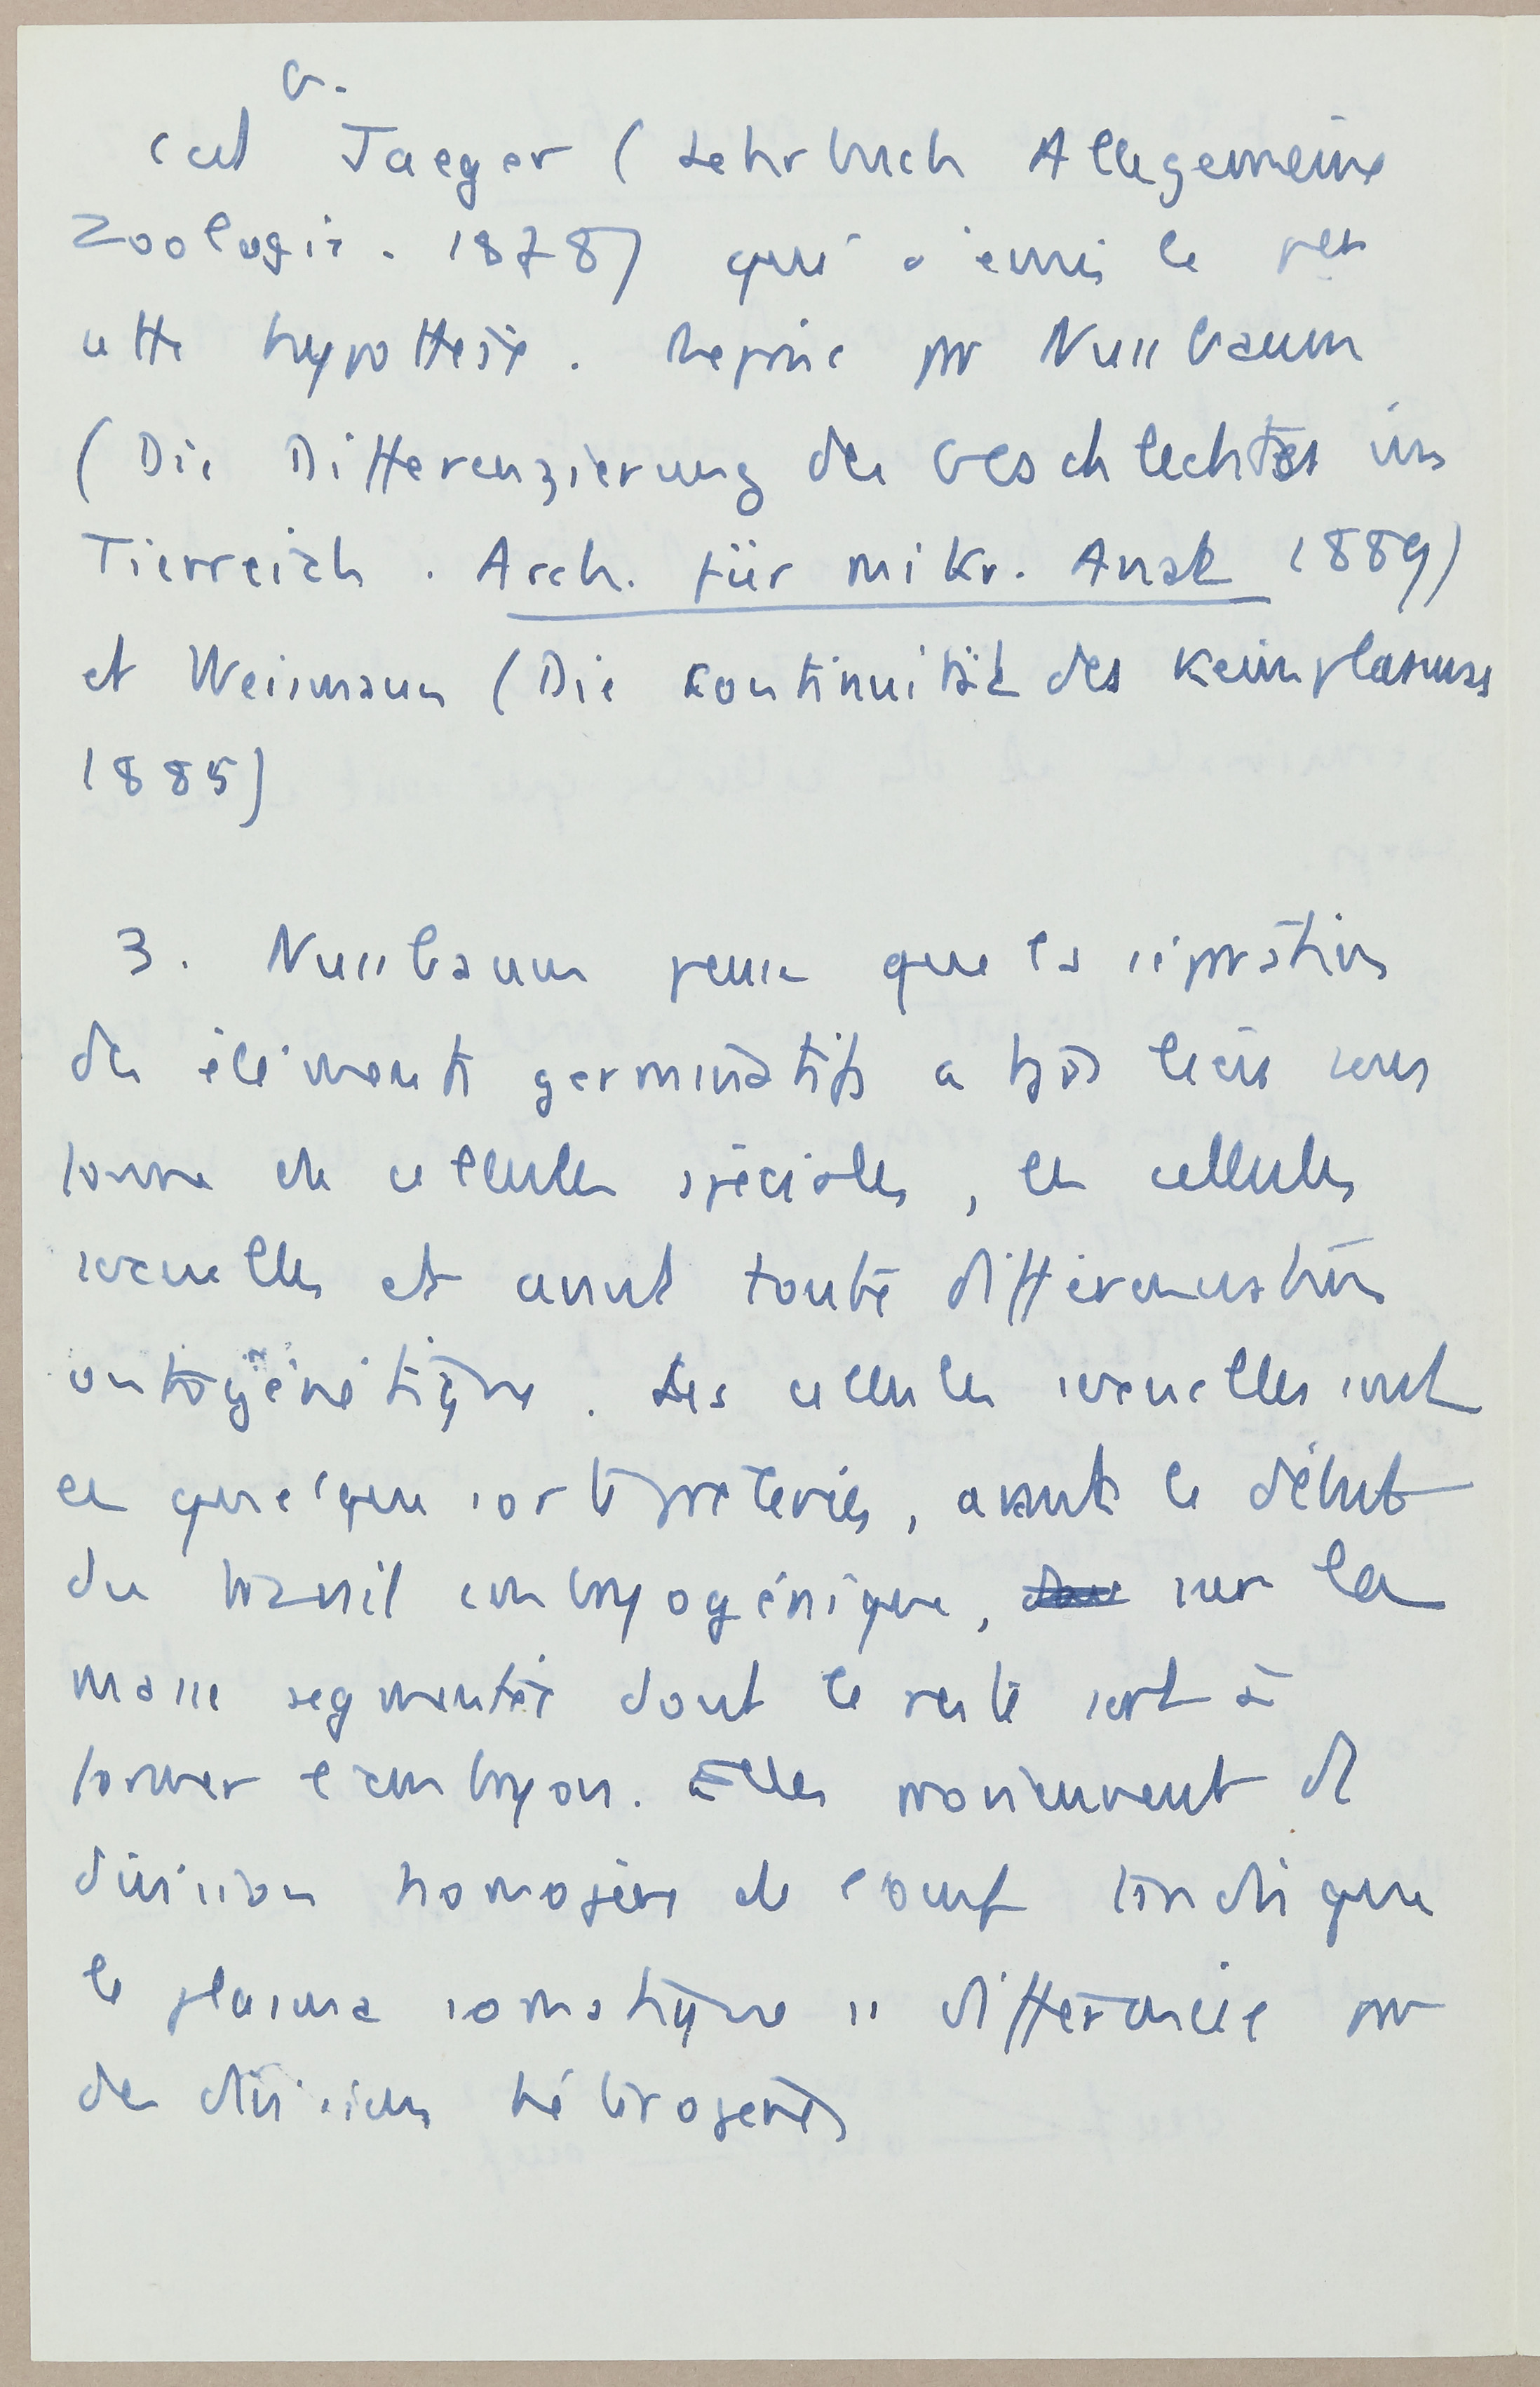 G.
c'est Jaeger (Lehrbuch Allegemeine
Zoologie. 1878) qui a émis le 1er
cette hypothèse. Reprise par Nussbaum
(Die Differenzierung des Geschlechtes im
Tierreich. Arch. für mikr. Anat 1889)
et Weismann (Die Kontinuität des Keimplasmas
1885)
3. Nussbaum pense que la séparation
des éléments germinatifs a lieu sous
forme de cellules spéciales, les cellules
sexuelles et avant toute différenciation
ontogénétique. Les cellules sexuelles sont
en quelque sorte prélevées, avant le début
du travail embryogénique, sur la
masse segmentée dont le reste sert à
former l'embryon. Elles proviennent de
division homogène de l'oeuf tandis que
le plasma somatique se différencie par
des divisions hétérogènes